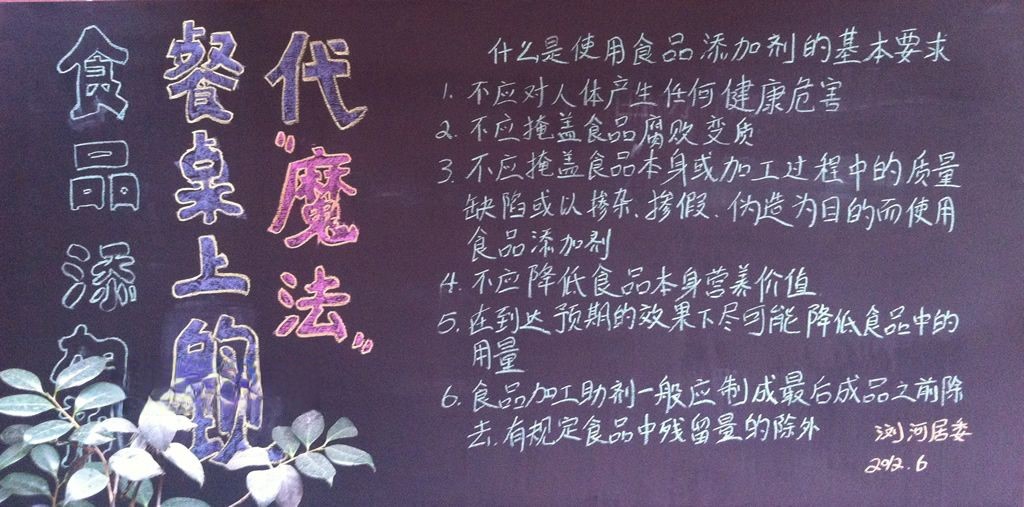 食品添加
餐桌上的现
代“魔法”
什么是使用食品添加剂的基本要求
1. 不应对人体产生任何健康危害
2. 不应掩盖食品腐败变质
3. 不应掩盖食品本身或加工过程中的质量
缺陷或以掺杂、掺假、伪造为目的而使用
食品添加剂
4. 不应降低食品本身营养价值
5. 在到达预期的效果下尽可能降低食品中的
用量
6. 食品加工助剂一般应制成最后成品之前除
去,有规定食品中残留量的除外
浏河居委
2012.6